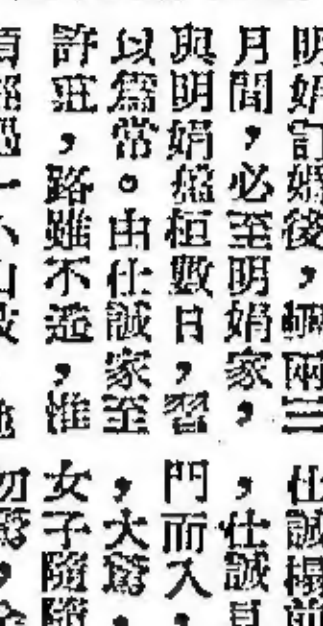 明娟訂婚後，兩三
月間，必至明娟家，
與明娟盤桓數日，習
以爲常。由仕誠家至
許莊，路雖不遠，惟
須經過一小山坡
仕誠榻前
，仕誠見
門而入，
，大驚，
女子隨
勿驚，